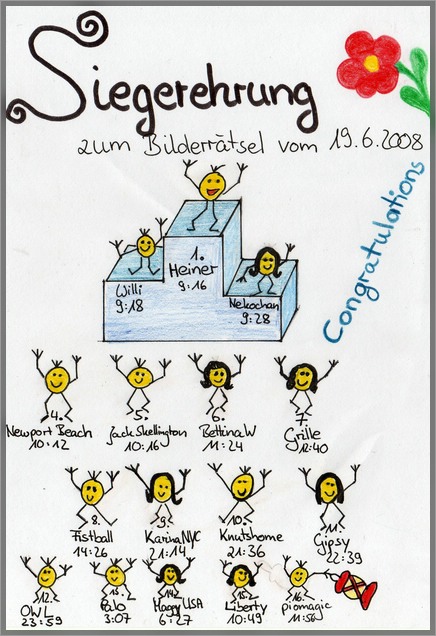 Siegerehrung
zum Bilderrätsel vom 19.6.2008
Congratulations
1.
Heiner
9:16
Willi
9:18
Nekochan
9:28
4.
Newport Beach
10:12
5.
Jack Skellington
10:16
6.
Bettina W
11:24
7.
Grille
12:40
8.
Fistball
14:26
9.
KarinaNYC
21:14
10.
Knutshome
21:36
11.
Gipsy
22:39
12.
OWL
23:59
13.
3:07
14.
Maggy USA
6:27
15.
Liberty
10:49
16.
piomagic
11:56